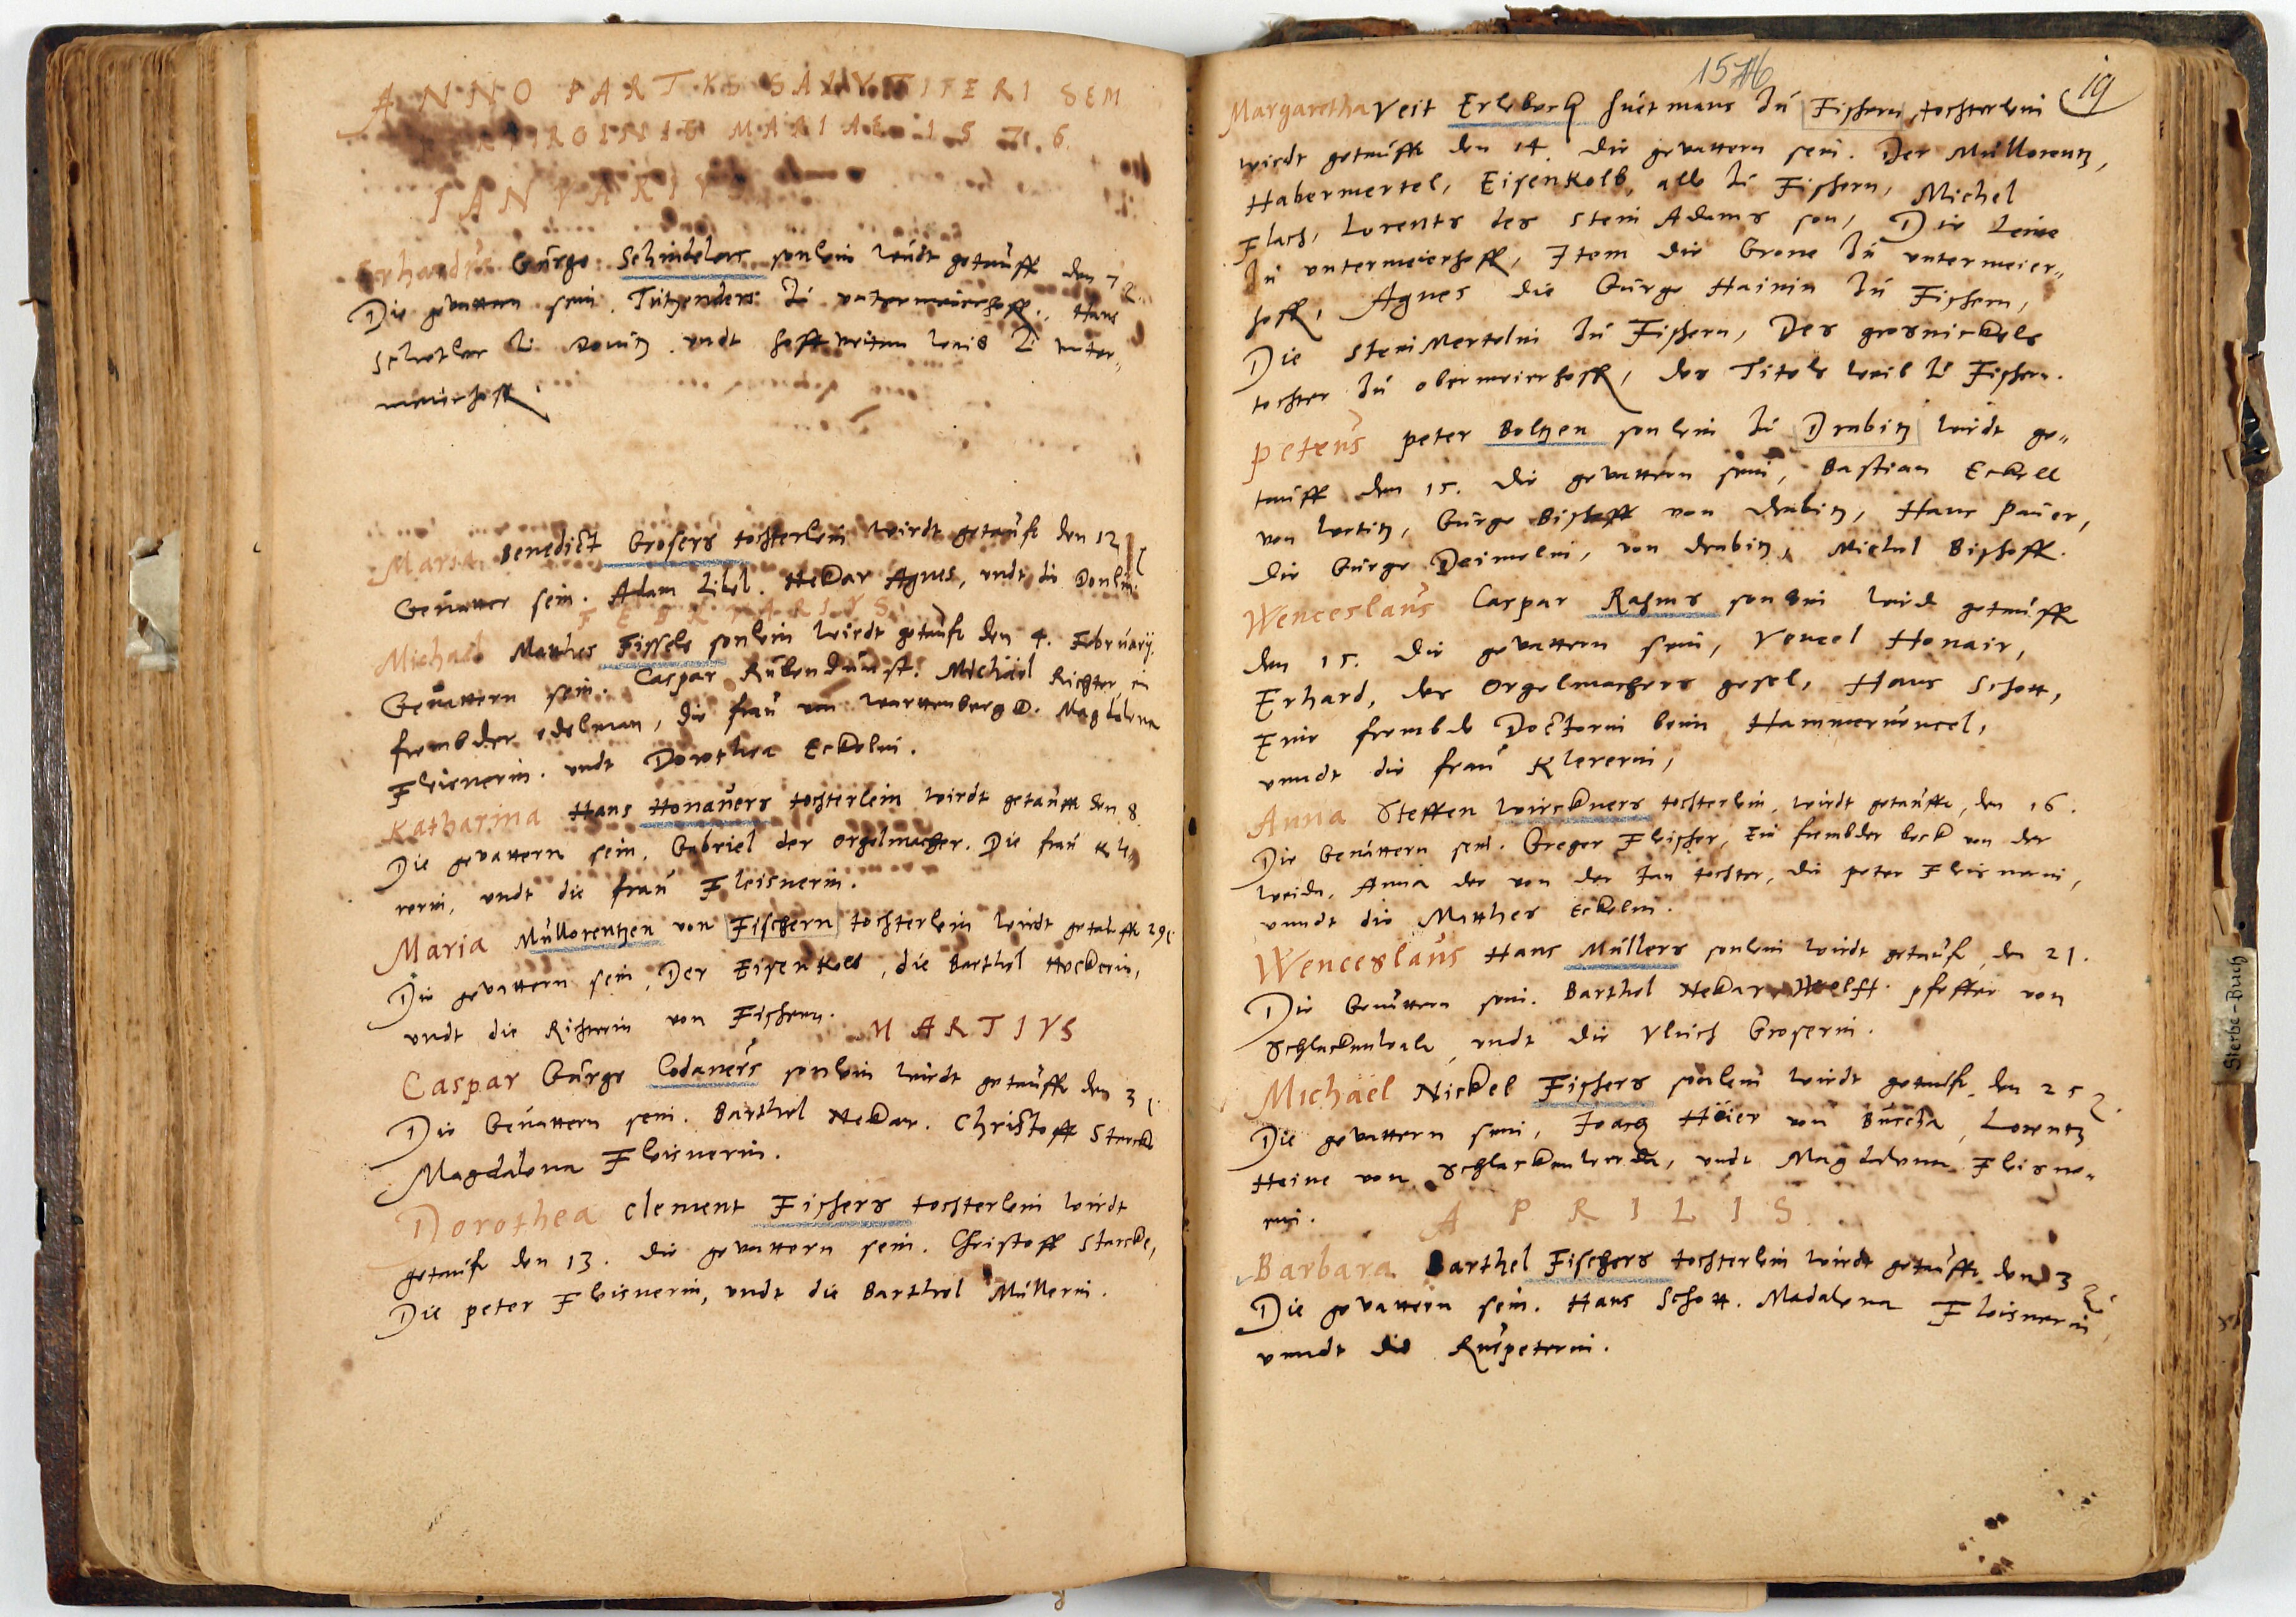 ANNO PARTVS SALVTIFERI SEM
MARIAE 1576.
IANVARIVS
Erhardus Gürge Schindelers sonlein wirdt getaufft den 7
Die gevattern sein. zu untermeierhoff, Hans
zu Donitz undt zu unter„
meierhoff.
Maria Benedict Grosers tochterlein wirdt getauft den 12
Gevatter sein. Adam Nekar Agnes, undt di
FEBRVARIVS
Michael Mathes Fissels sonlein wirdt getauft den 4. February
Gevattern sein. Caspar Rubendunst. Michael Richter, ein
frembder edelman, die frau von Warttenberg D. Magdalena
Fleisnerin. undt Dorothea Eckelin.
Katharina Hans Honauers tochterlein wirdt getaufft den 8
Die gevattern sein, Gabriel der orgelmacher. Die frau Kle„
rerin, undt die frau Fleisnerin.
Maria Müllorentzen von Fischern tochterlein wirdt getaufft 29
Die gevattern sein, Der Eisenkolb, die Barthel Hockerin,
undt die Richterin von Fischern.
MARTIVS
Caspar Gürge Codaners sonlein wirdt getaufft den 3
Die Gevattern sein. Barthel Nekar. Christoff Starck
Magdalena Fleisnerin.
Dorothea Clement Fischers tochterlein wirdt
getauft den 13. die gevattern sein. Christoff Starcke,
Die peter Fleisnerin, undt die Barthel Müllerin.
1576
19
Margaretha Veit Erlebach hütmans zu Fischern tochterlein
wirdt getaufft den 14. die gevattern sein. Der Müllorentz,
Habermertel, Eisenkolb, alle zu Fischern, Michel
Flach, Lorents des Stein Adams son, Die Leine
zu untermeierhoff, Item die Grone zu untermeier„
hoff, Agnes die Gürge Hainin zu Fischern,
Die SteinMertelin zu Fischern, Des grosnickels
tochter zu obermeierhoff, des Titels weib zu Fischern.
Petrus peter Boltzen sonlein zu Drabitz wirdt ge„
taufft den 15. die gevattern sein, Bastian Eckell
von Wetitz, Gürge Bischoff von drabitz, Hans Pauer,
die Gürge Deimelin, von drabitz, Michel Bischoff.
Wenceslaus Caspar Rahms sonlein wird getaufft
den 15. die gevattern sein, Vencel Honair,
Erhard, des Orgelmachers gesel, Hans Schott,
Eine frembde Doctorin beim Hammervencel,
unndt die frau Klererin,
Anna Steffen Wirckners tochterlein, wirdt getaufft, den 16.
Die Gevattern sein. Greger Fleischer, Ein frembder beck von der
Weiden, Anna der von der Tan tochter, die peter Fleisnerin,
unndt die Matthes Eckelin.
Wenceslaus Hans Müllers sonlein wirdt getauft, den 21.
Die Gevattern sein. Barthel Nekar, Wolff pfeffer von
Schlackenwalt, undt die Ulrich Groserin.
Michael Nickel Fischers sonlein wirdt getauft, den 25
Die gevattern sein, Joach Höier von Bucha, Lorentz
Heine von Schlackenwerda, undt Magdalena Fleisne„
rin.
APRILIS
Barbara Barthel Fischers tochterlein wirdt getaufft, den 3
Die gevattern sein. Hans Schott. Madalena Fleisnerin
unndt die Ruspeterin.
Sterbe-Buch